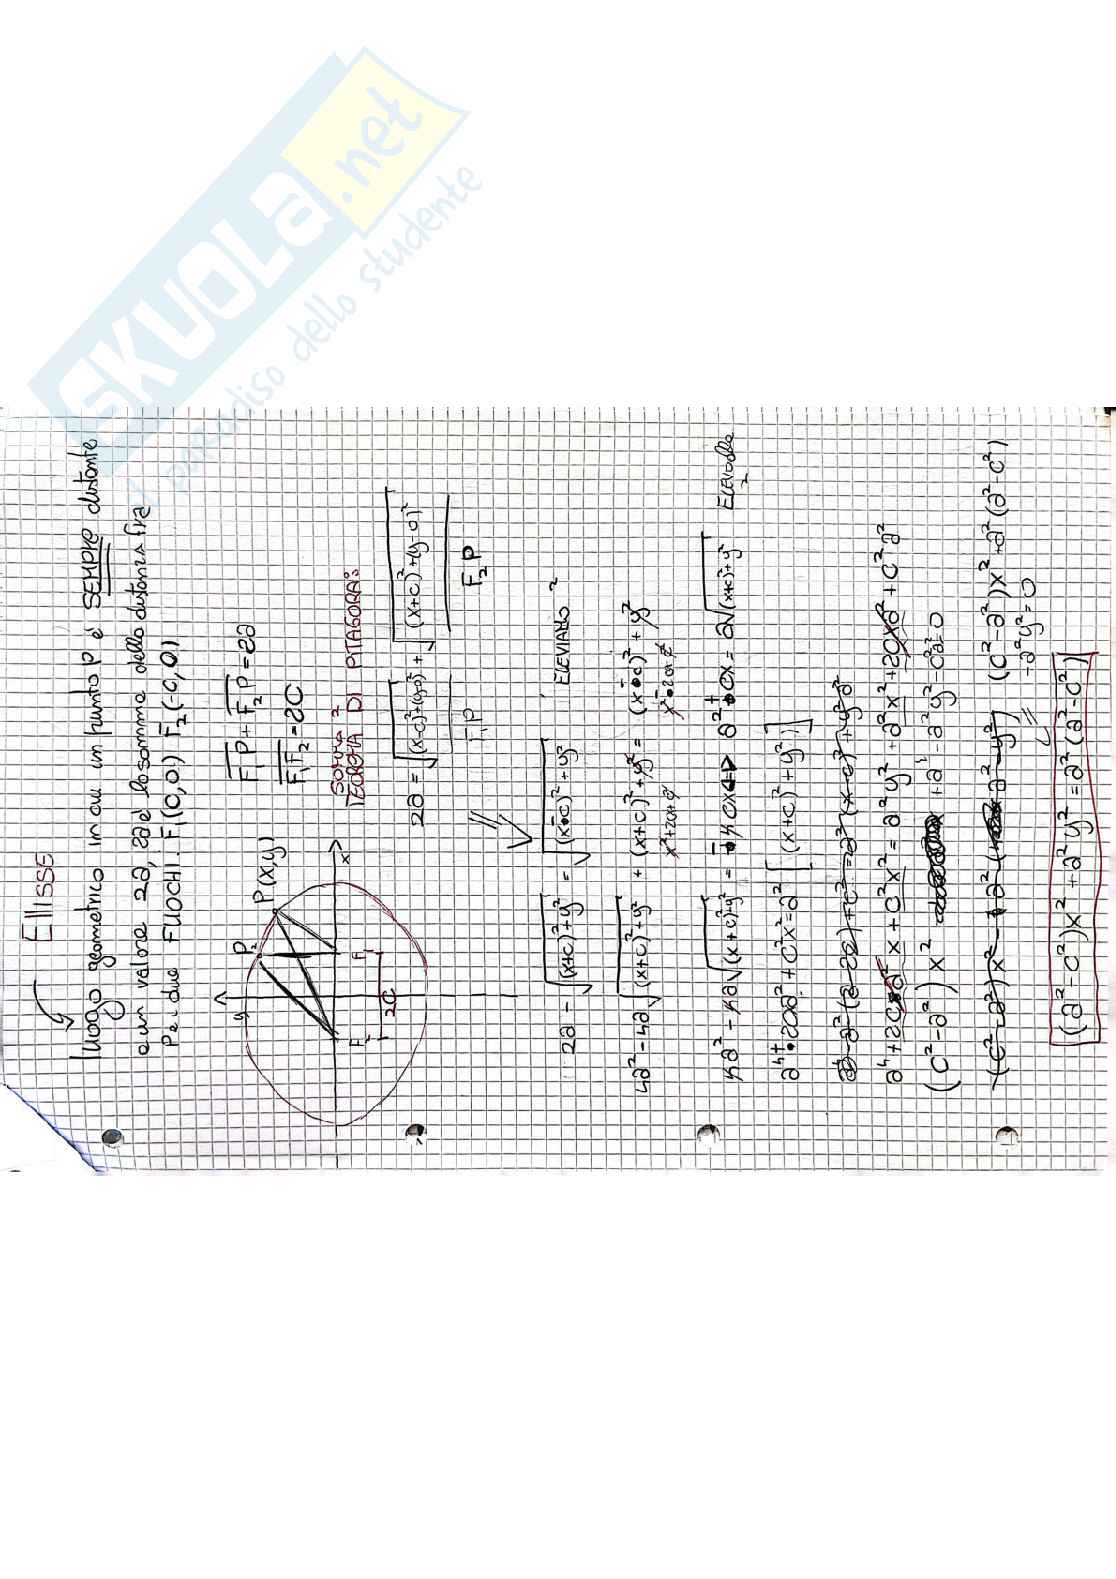 SKUOLA.net
il paradiso dello studente
Ellisse
luogo geometrico in cui un punto P è SEMPRE distante
a un valore 2a, 2a è la somma della distanza fra
P e i due FUOCHI. F₁(0,0) F₂(-c,0)
F₁P + F₂P = 2a
F₁F₂ = 2C
SOMMA 2
TEOREMA DI PITAGORA:
y
P₂
P(x,y)
x
F₂
F₁
2C
2a = √(x-c)²+(y-0)² + √(x+c)²+(y-0)²
F₁P
F₂P
2a - √(x+c)²+y² = √(x-c)²+y² ELEVIAMO ²
4a² - 4a√(x+c)²+y² + (x+c)²+y² = (x-c)²+y²
4a² - 4a√(x+c)²+y² = -4cx → a²+cx = a√(x+c)²+y²
a⁴+2ca²+c²x² = a² [(x+c)²+y²]
a⁴+2ca²x+c²x² = a²y²+a²x²+2cxa²+c²a²
(c²-a²)x² + a⁴-a²y²-c²a²=0
(c²-a²)x²+a²(a²-c²)
-a²y²=0
(a²-c²)x²+a²y²=a²(a²-c²)